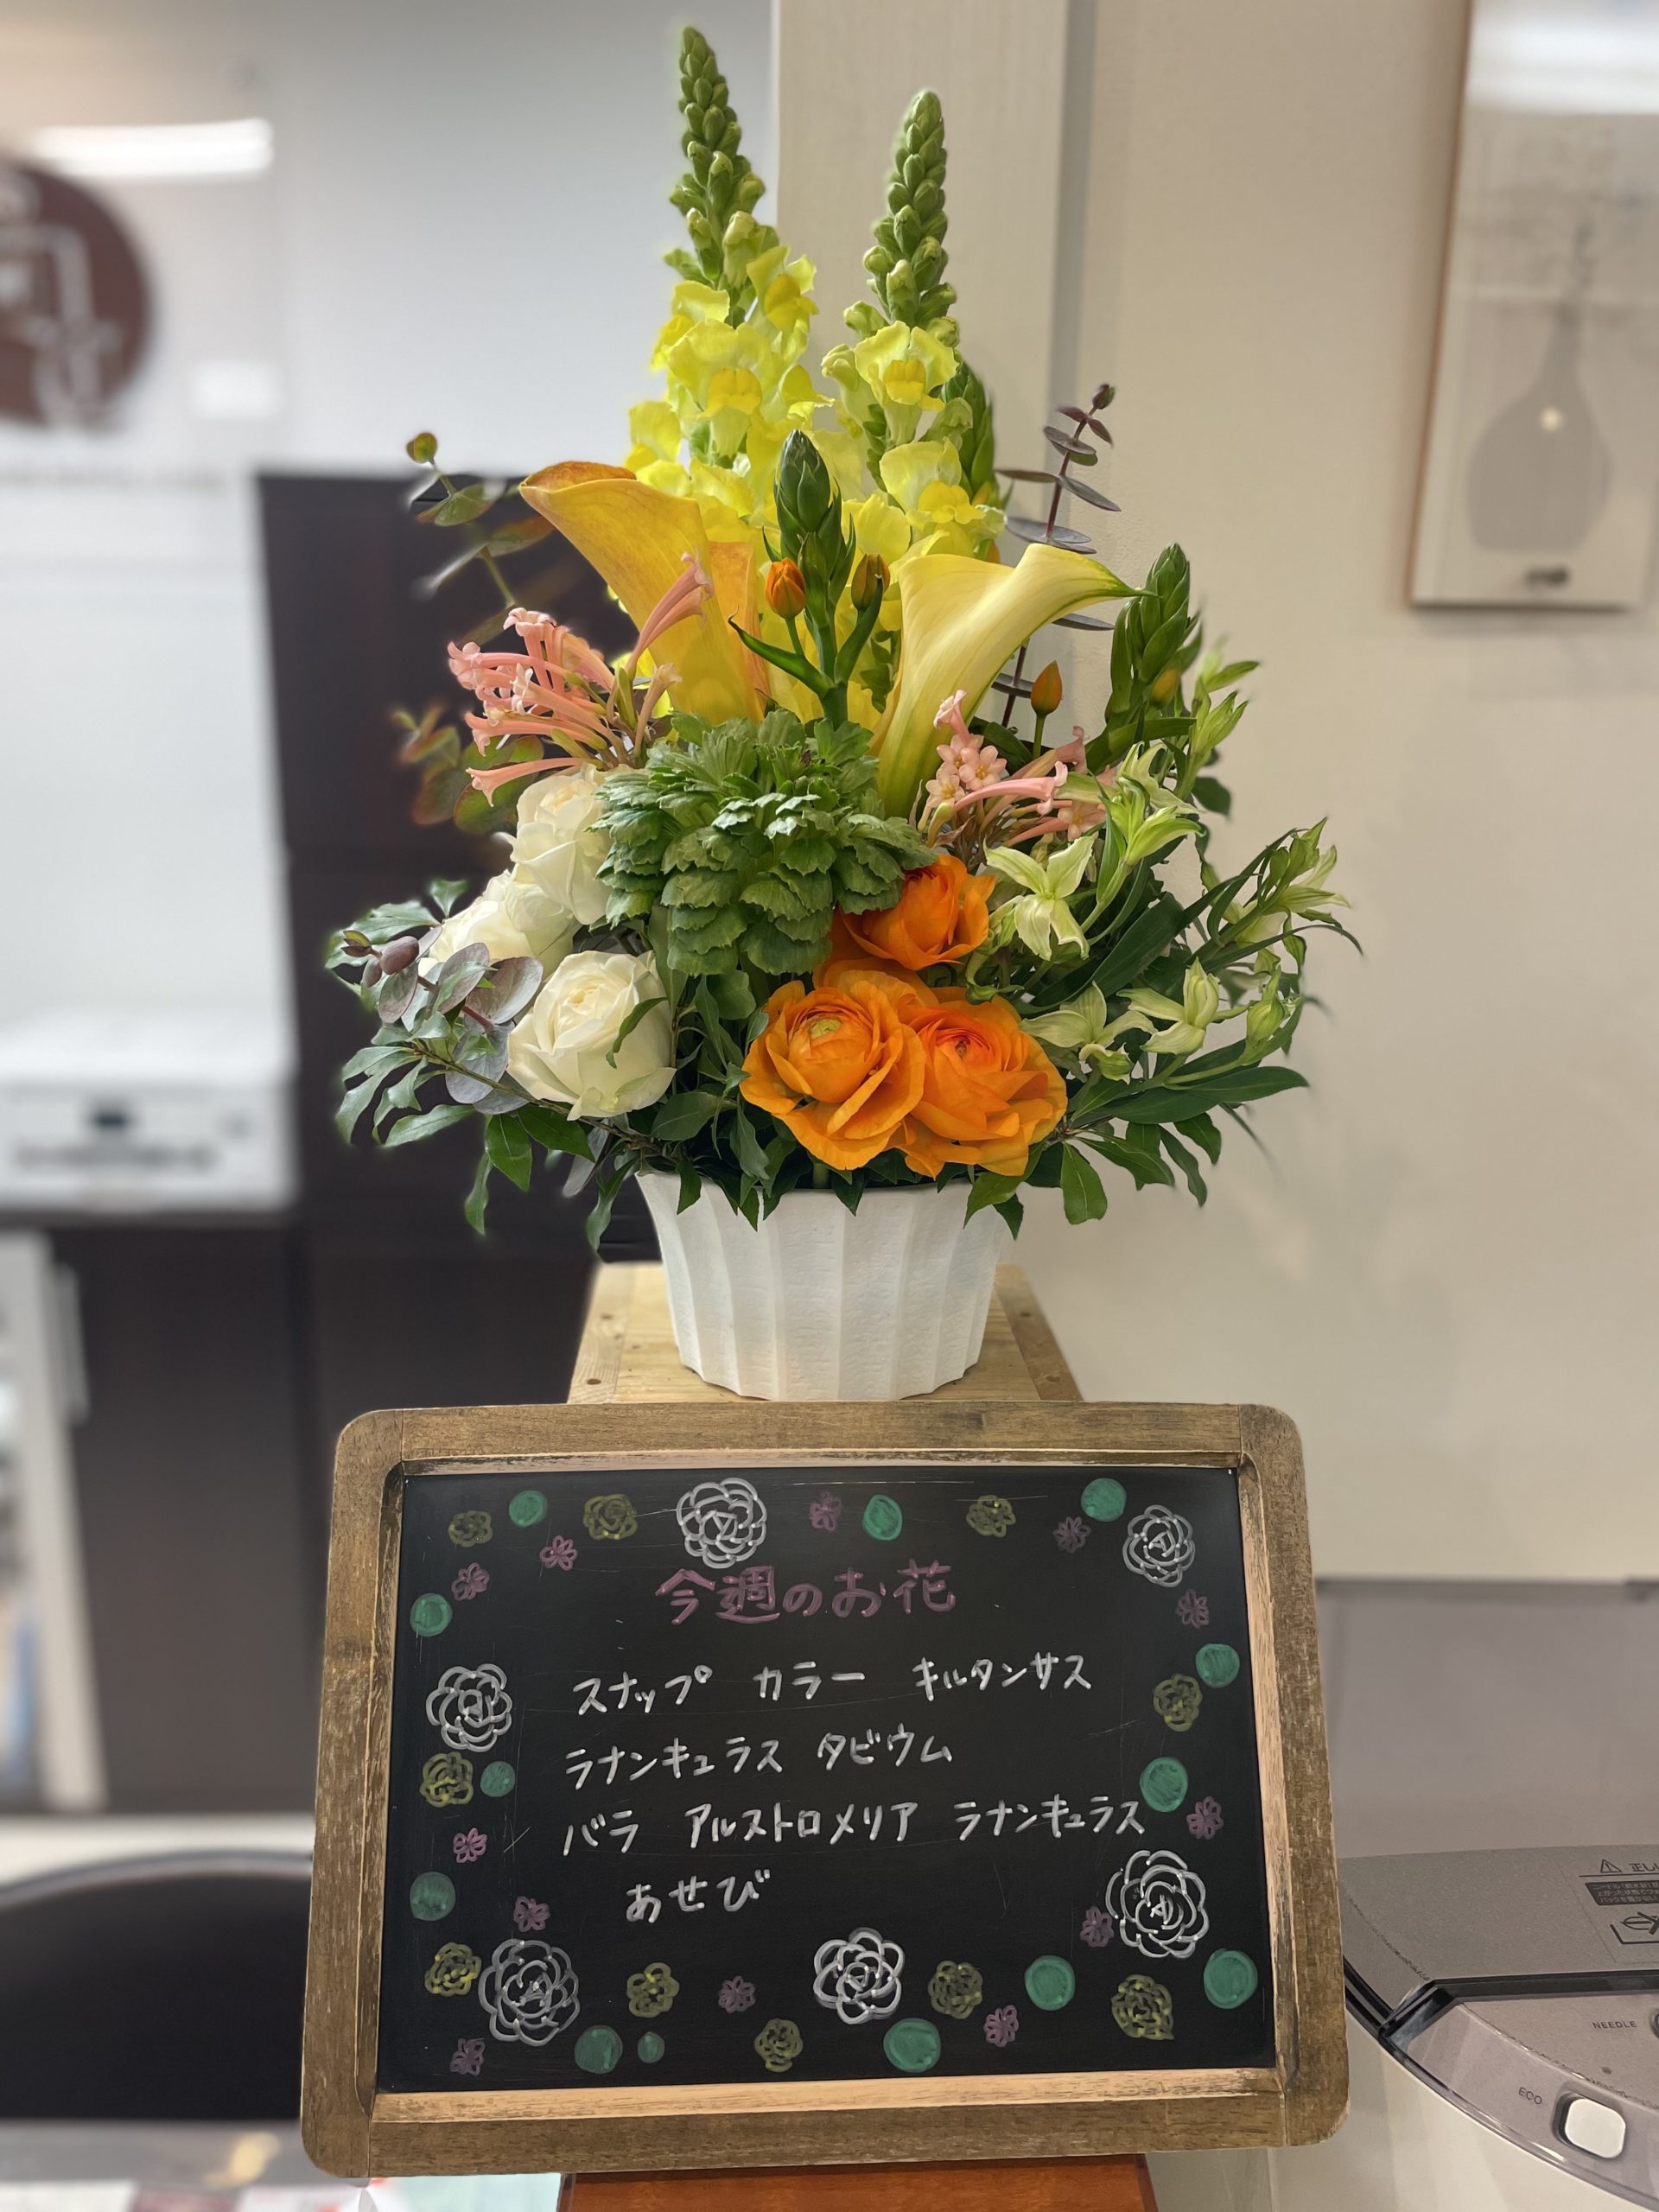 今週のお花
スナップ カラー キルタンサス
ラナンキュラス タビウム
バラ アルストロメリア ラナンキュラス
あせび
NEEDLE
ECO